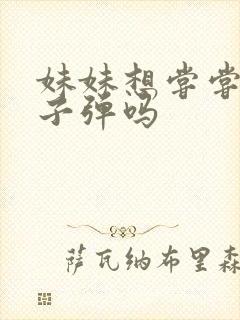 妹妹想尝尝
子弹吗
萨瓦纳布里森